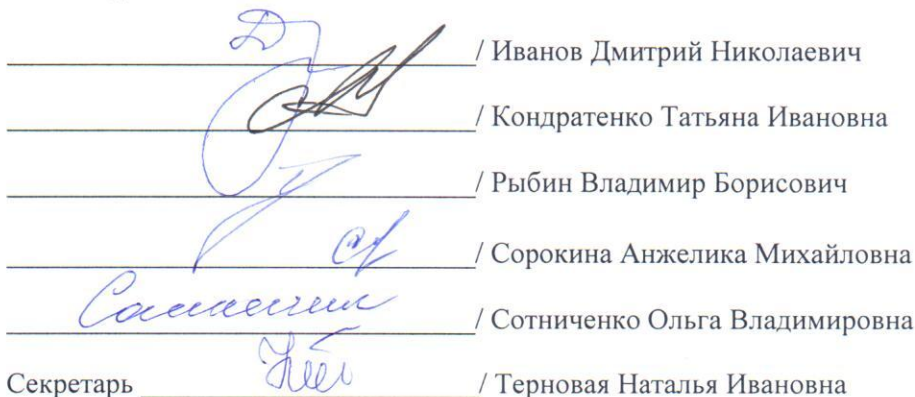 / Иванов Дмитрий Николаевич
/ Кондратенко Татьяна Ивановна
/ Рыбин Владимир Борисович
/ Сорокина Анжелика Михайловна
/ Сотниченко Ольга Владимировна
Секретарь / Терновая Наталья Ивановна